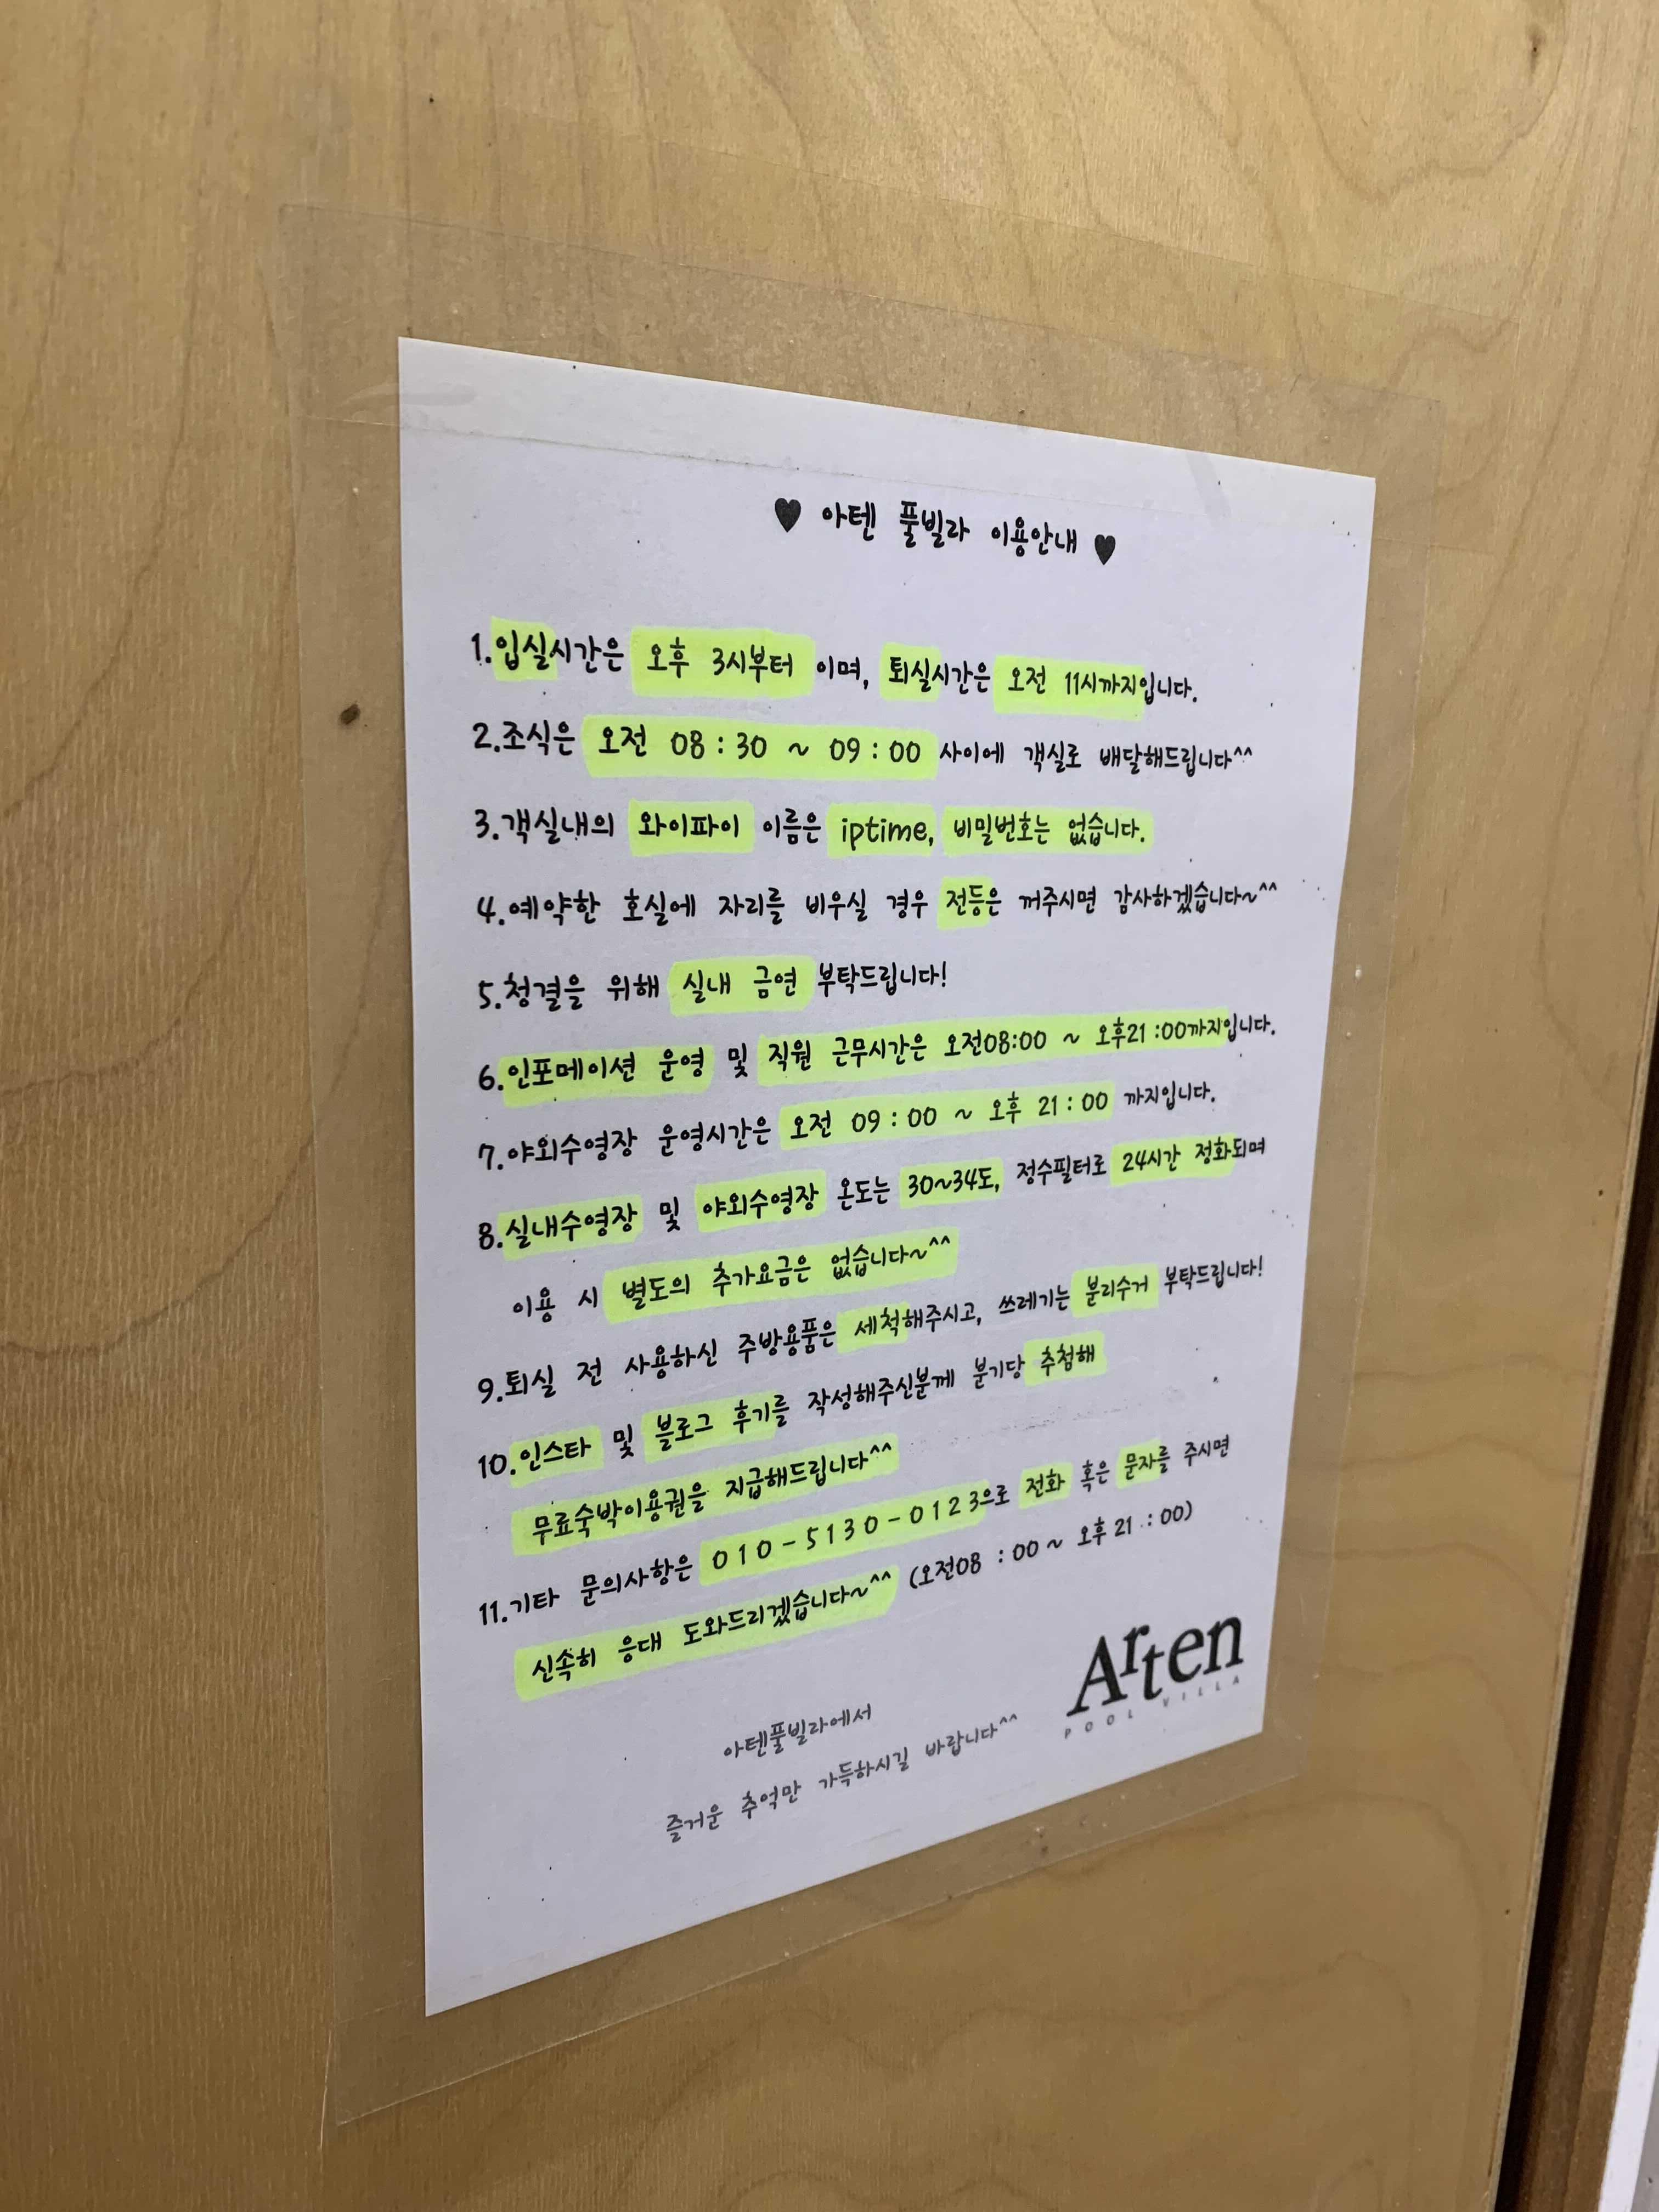 ♥ 아텐 풀빌라 이용안내 ♥
1.입실시간은 오후 3시부터 이며, 퇴실시간은 오전 11시까지입니다.
2.조식은 오전 08 : 30 ~ 09 : 00 사이에 객실로 배달해드립니다^^
3.객실내의 와이파이 이름은 iptime, 비밀번호는 없습니다.
4.예약한 호실에 자리를 비우실 경우 전등은 꺼주시면 감사하겠습니다~^^
5.청결을 위해 실내 금연 부탁드립니다!
6.인포메이션 운영 및 직원 근무시간은 오전08:00 ~ 오후21 :00까지입니다.
7.야외수영장 운영시간은 오전 09 : 00 ~ 오후 21 : 00 까지입니다.
8.실내수영장 및 야외수영장 온도는 30~34도, 정수필터로 24시간 정화되며
이용 시 별도의 추가요금은 없습니다~^^
9.퇴실 전 사용하신 주방용품은 세척해주시고, 쓰레기는 분리수거 부탁드립니다!
10.인스타 및 블로그 후기를 작성해주신분께 분기당 추첨해
무료숙박이용권을 지급해드립니다^^
11.기타 문의사항은 010-5130-0123으로 전화 혹은 문자를 주시면
신속히 응대 도와드리겠습니다~^^ (오전08 : 00 ~ 오후 21 : 00)
Arten
POOL VILLA
아텐풀빌라에서
즐거운 추억만 가득하시길 바랍니다^^